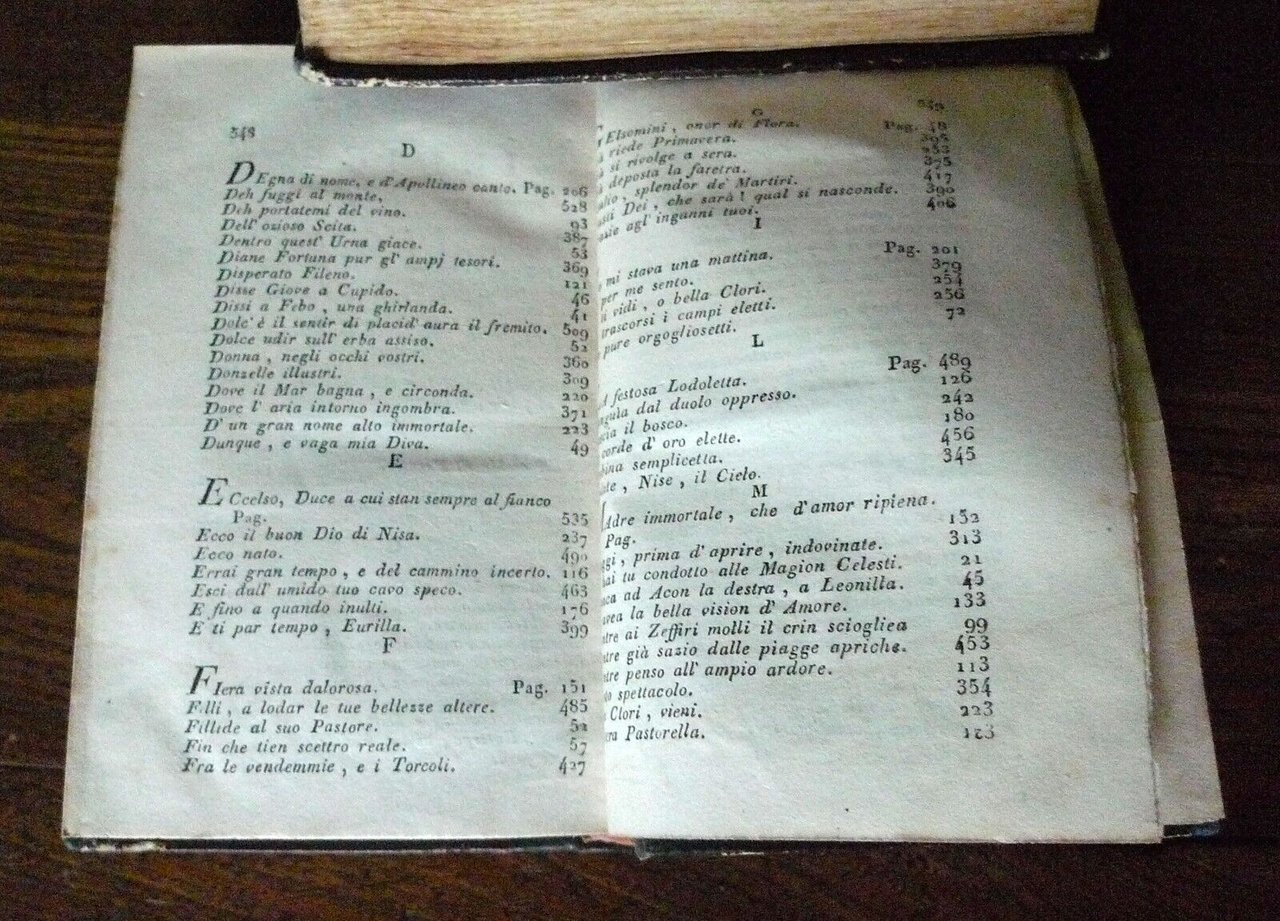 348
D
DEgna di nome, e d'Apollineo canto. Pag. 206
Deh fuggi al monte, 528
Deh portatemi del vino. 93
Dell' ozioso Scita. 387
Dentro quest' Urna giace. 53
Diane Fortuna pur gl' ampj tesori. 369
Disperato Fileno. 121
Disse Giove a Cupido. 46
Dissi a Febo, una ghirlanda. 41
Dolc' è il sentir di placid' aura il fremito. 509
Dolce udir sull' erba assiso. 52
Donna, negli occhi vostri. 360
Donzelle illustri. 309
Dove il Mar bagna, e circonda. 220
Dove l' aria intorno ingombra. 371
D' un gran nome alto immortale. 223
Dunque, e vaga mia Diva. 49
E
ECcelso, Duce a cui stan sempre al fianco
Pag. 535
Ecco il buon Dio di Nisa. 237
Ecco nato. 490
Errai gran tempo, e del cammino incerto. 116
Esci dall' umido tuo cavo speco. 463
E fino a quando inulti. 176
E ti par tempo, Eurilla. 399
F
FIera vista dalorosa. Pag. 151
Filli, a lodar le tue bellezze altere. 485
Fillide al suo Pastore. 52
Fin che tien scettro reale. 57
Fra le vendemmie, e i Torcoli. 427
G
Elsomini, onor di Flora. Pag. 48
riede Primavera. 395
si rivolge a sera. 253
deposta la faretra. 375
splendor de' Martiri. 417
Dei, che sarà! qual si nasconde. 390
agl' inganni tuoi. 406
I
mi stava una mattina. Pag. 201
per me sento. 379
vidi, o bella Clori. 254
trascorsi i campi eletti. 256
pure orgogliosetti. 72
L
festosa Lodoletta. Pag. 489
dal duolo oppresso. 126
il bosco. 242
corde d' oro elette. 180
semplicetta. 456
Nise, il Cielo. 345
M
Adre immortale, che d'amor ripiena.
Pag. 152
prima d' aprire, indovinate. 313
tu condotto alle Magion Celesti. 21
ad Acon la destra, a Leonilla. 45
la bella vision d' Amore. 133
ai Zeffiri molli il crin sciogliea 99
già sazio dalle piagge apriche. 453
penso all' ampio ardore. 113
spettacolo. 354
Clori, vieni. 223
Pastorella.